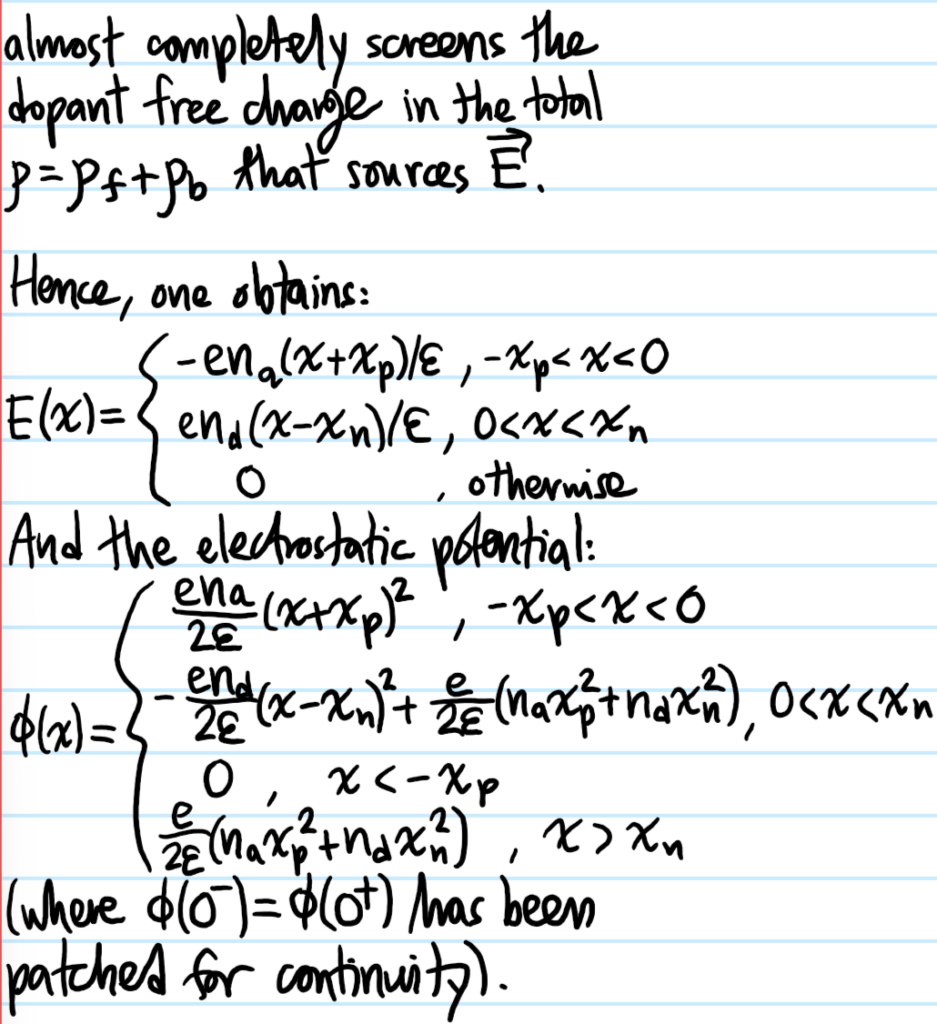 almost completely screens the
dopant free charge in the total
ρ=ρ_f+ρ_b that sources \vec{E}.
Hence, one obtains:
E(x)= { -en_a(x+x_p)/ε , -x_p<x<0
en_d(x-x_n)/ε , 0<x<x_n
0 , otherwise
And the electrostatic potential:
φ(x)= { \frac{en_a}{2ε}(x+x_p)^2 , -x_p<x<0
-\frac{en_d}{2ε}(x-x_n)^2+\frac{e}{2ε}(n_ax_p^2+n_dx_n^2), 0<x<x_n
0 , x<-x_p
\frac{e}{2ε}(n_ax_p^2+n_dx_n^2) , x>x_n
(where φ(0^-)=φ(0^+) has been
patched for continuity).